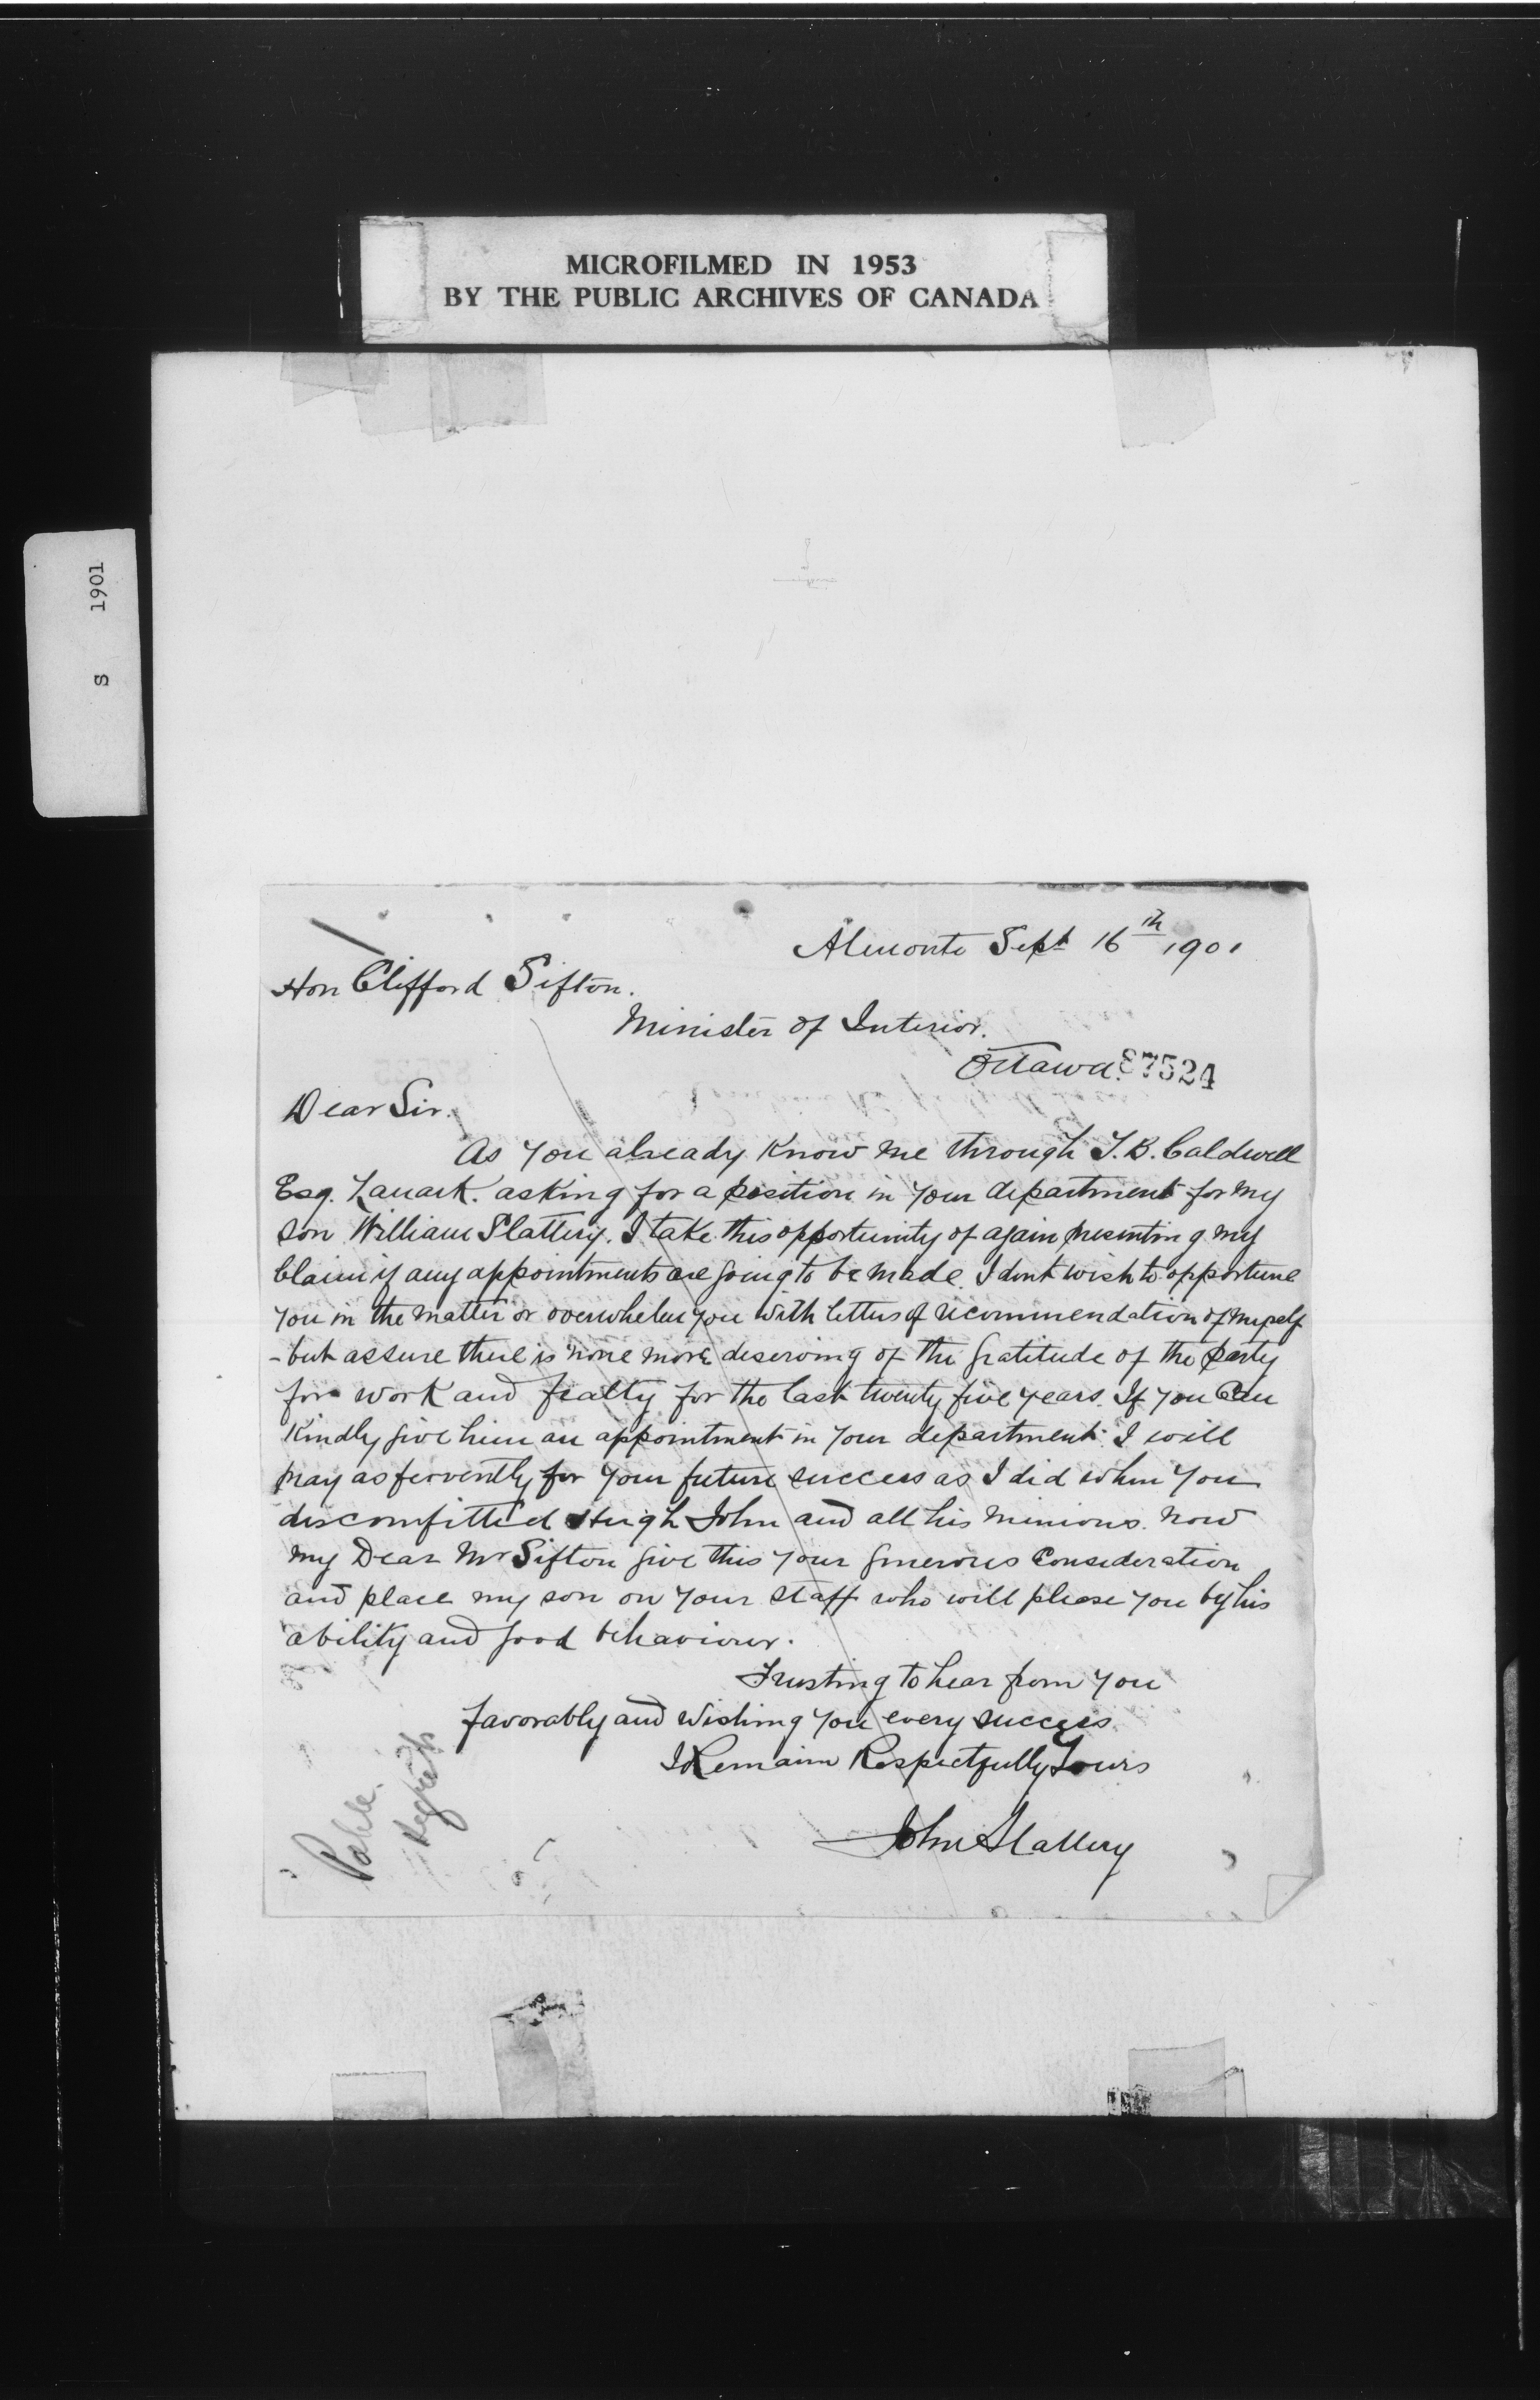 MICROFILMED IN 1953
BY THE PUBLIC ARCHIVES OF CANADA
S 1901
Almonte Sept 16th 1901
Hon Clifford Sifton.
Minister of Interior.
Ottawa. 87524
Dear Sir.
As You already Know me through T.B. Caldwell
Esq. Lanark. asking for a position in Your department for my
son William Slattery. I take this opportunity of again presenting my
Claim if any appointments are going to be made. I dont wish to opportune
You in the matter or overwhelm you with letters of recommendation of myself
- but assure there is none more deserving of the gratitude of the party
for work and fealty for the last twenty five years. If you Can
Kindly give him an appointment in Your department. I will
pray as fervently for Your future success as I did when You
discomfitted Hugh John and all his minions. now
my Dear Mr Sifton give this Your generous Consideration
and place my son on Your staff who will please you by his
ability and good behaviour.
Trusting to hear from You
favorably and Wishing You every success
I Remain Respectfully Yours
John Slattery
regrets